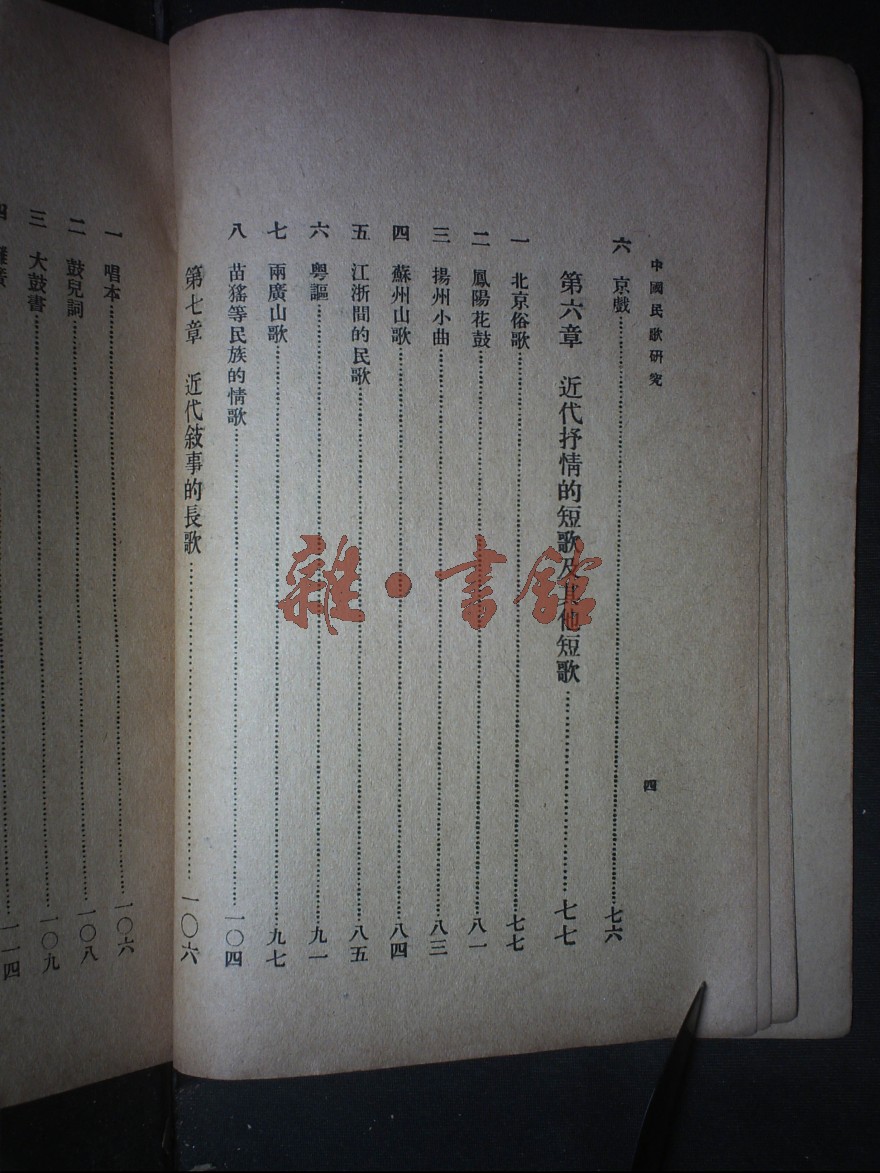 中國民歌研究
四
六 京戲 七六
第六章 近代抒情的短歌及其他短歌 七七
一 北京俗歌 七七
二 鳳陽花鼓 八一
三 揚州小曲 八三
四 蘇州山歌 八四
五 江浙間的民歌 八五
六 粵謳 九一
七 兩廣山歌 九七
八 苗猺等民族的情歌 一〇四
第七章 近代敍事的長歌 一〇六
一 唱本 一〇六
二 鼓兒詞 一〇八
三 大鼓書 一〇九
四 一一四
雜·書館